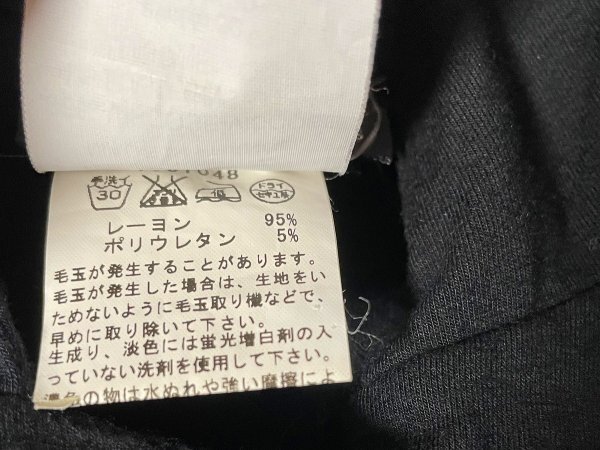 648
手洗イ 30 エンソ サラシ 低 ドライ セキユ系
レーヨン 95%
ポリウレタン 5%
毛玉が発生することがあります。
毛玉が発生した場合は、生地をい
ためないように毛玉取り機などで、
早めに取り除いて下さい。
生成り、淡色には蛍光増白剤の入
っていない洗剤を使用して下さい。
濃色の物は水ぬれや強い摩擦によ